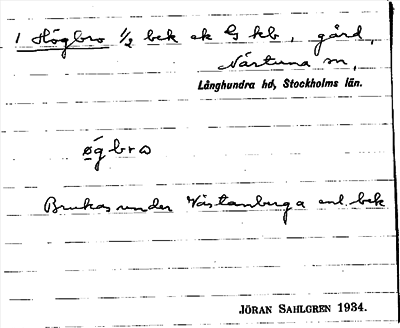 1 Högbro ½ bek ek G kb, gård,
Närtuna sn,
Långhundra hd, Stockholms län.
øg bro
Brukas under Västanberga enl. bek
JÖRAN SAHLGREN 1934.